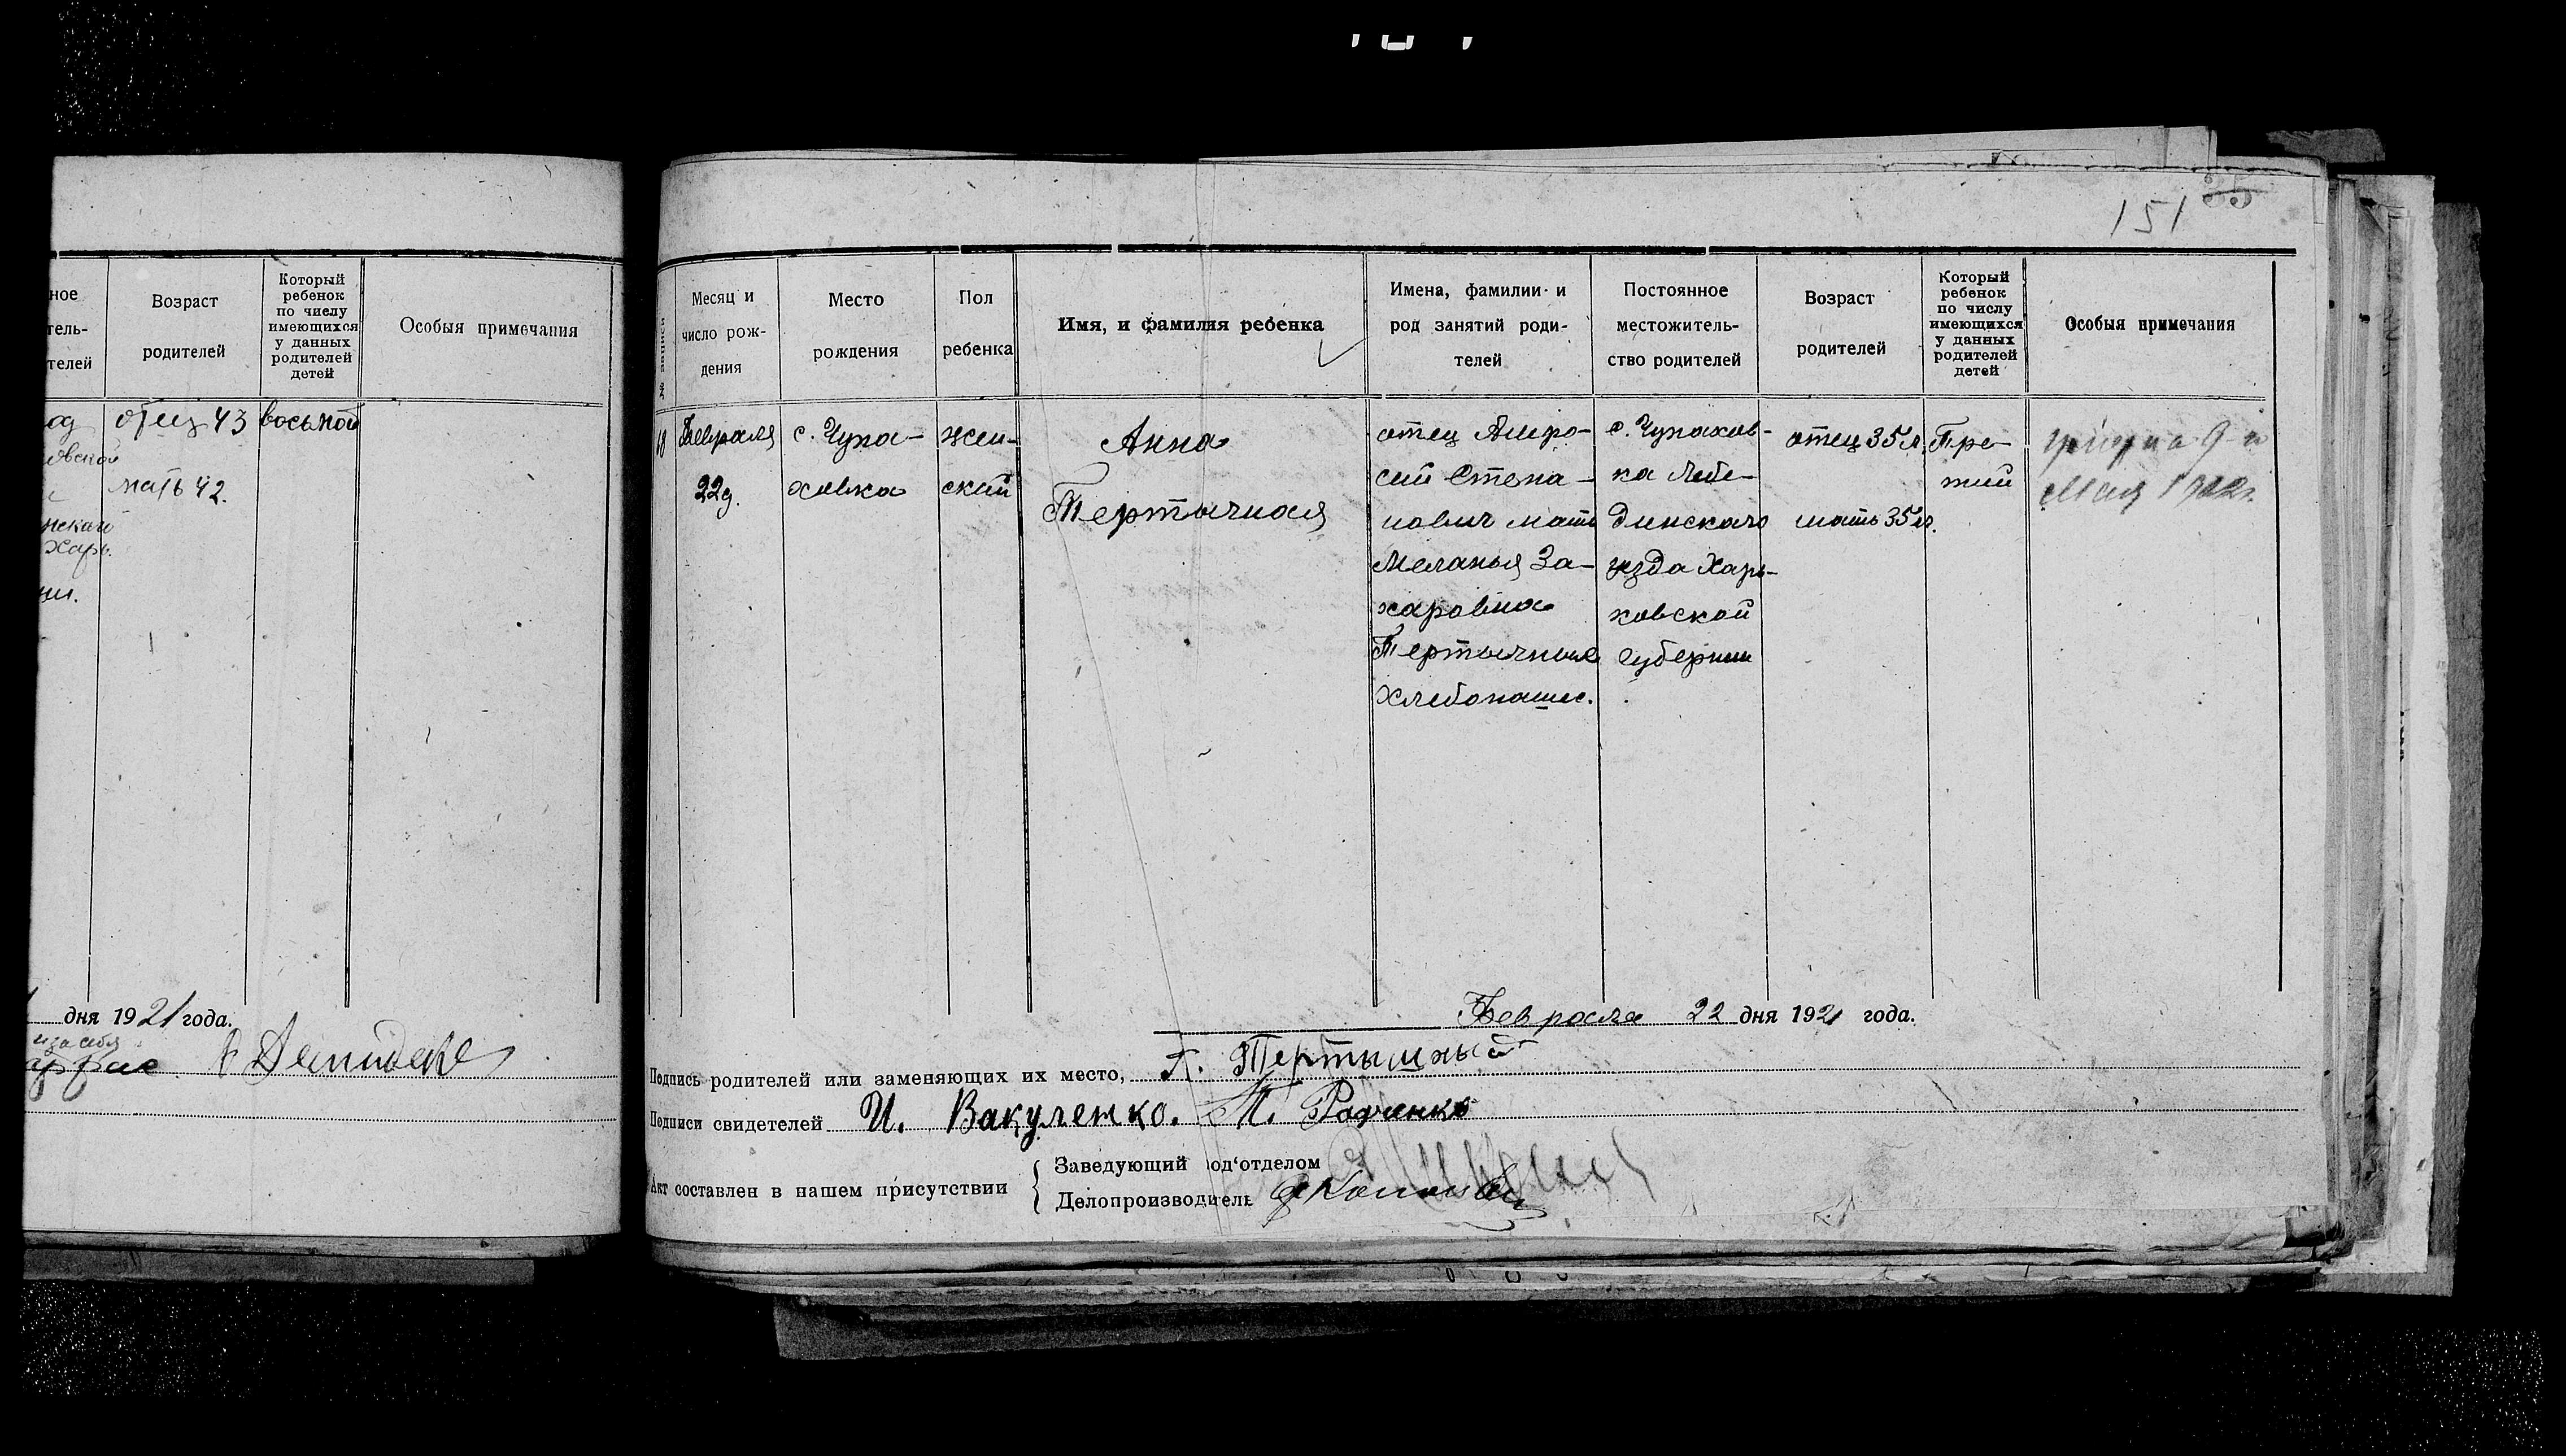 151 35
ное
тель-
телей
Возраст
родителей
Который
ребенок
по числу
имеющихся
у данных
родителей
детей
Особыя примечания
отец 43
восьмой
мать 42.
дня 1921 года.
№ записи
Месяц и
число рож-
дения
Место
рождения
Пол
ребенка
Имя, и фамилия ребенка
Имена, фамилии и
род занятий роди-
телей
Постоянное
местожитель-
ство родителей
Возраст
родителей
Который
ребенок
по числу
имеющихся
у данных
родителей
детей
Особыя примечания
18
Февраля
22д.
с. Чупа-
ховка
жен-
ский
Анна
Тертычная
отец Амвро-
сий Степа-
нович мать
Меланья За-
харовна
Тертычные
хлебопашес.
с. Чупахов-
ка Лебе-
динскаго
уезда Харь-
ковской
губернии
отец 35 л.
мать 35 л.
Тре-
тий
9-го
Мая 1922г.
Февраля 22 дня 1921 года.
Подпись родителей или заменяющих их место, А. Тертышный
Подписи свидетелей И. Вакуленко. Т. Радченко
Акт составлен в нашем присутствии
Заведующий под'отделом
Делопроизводитель